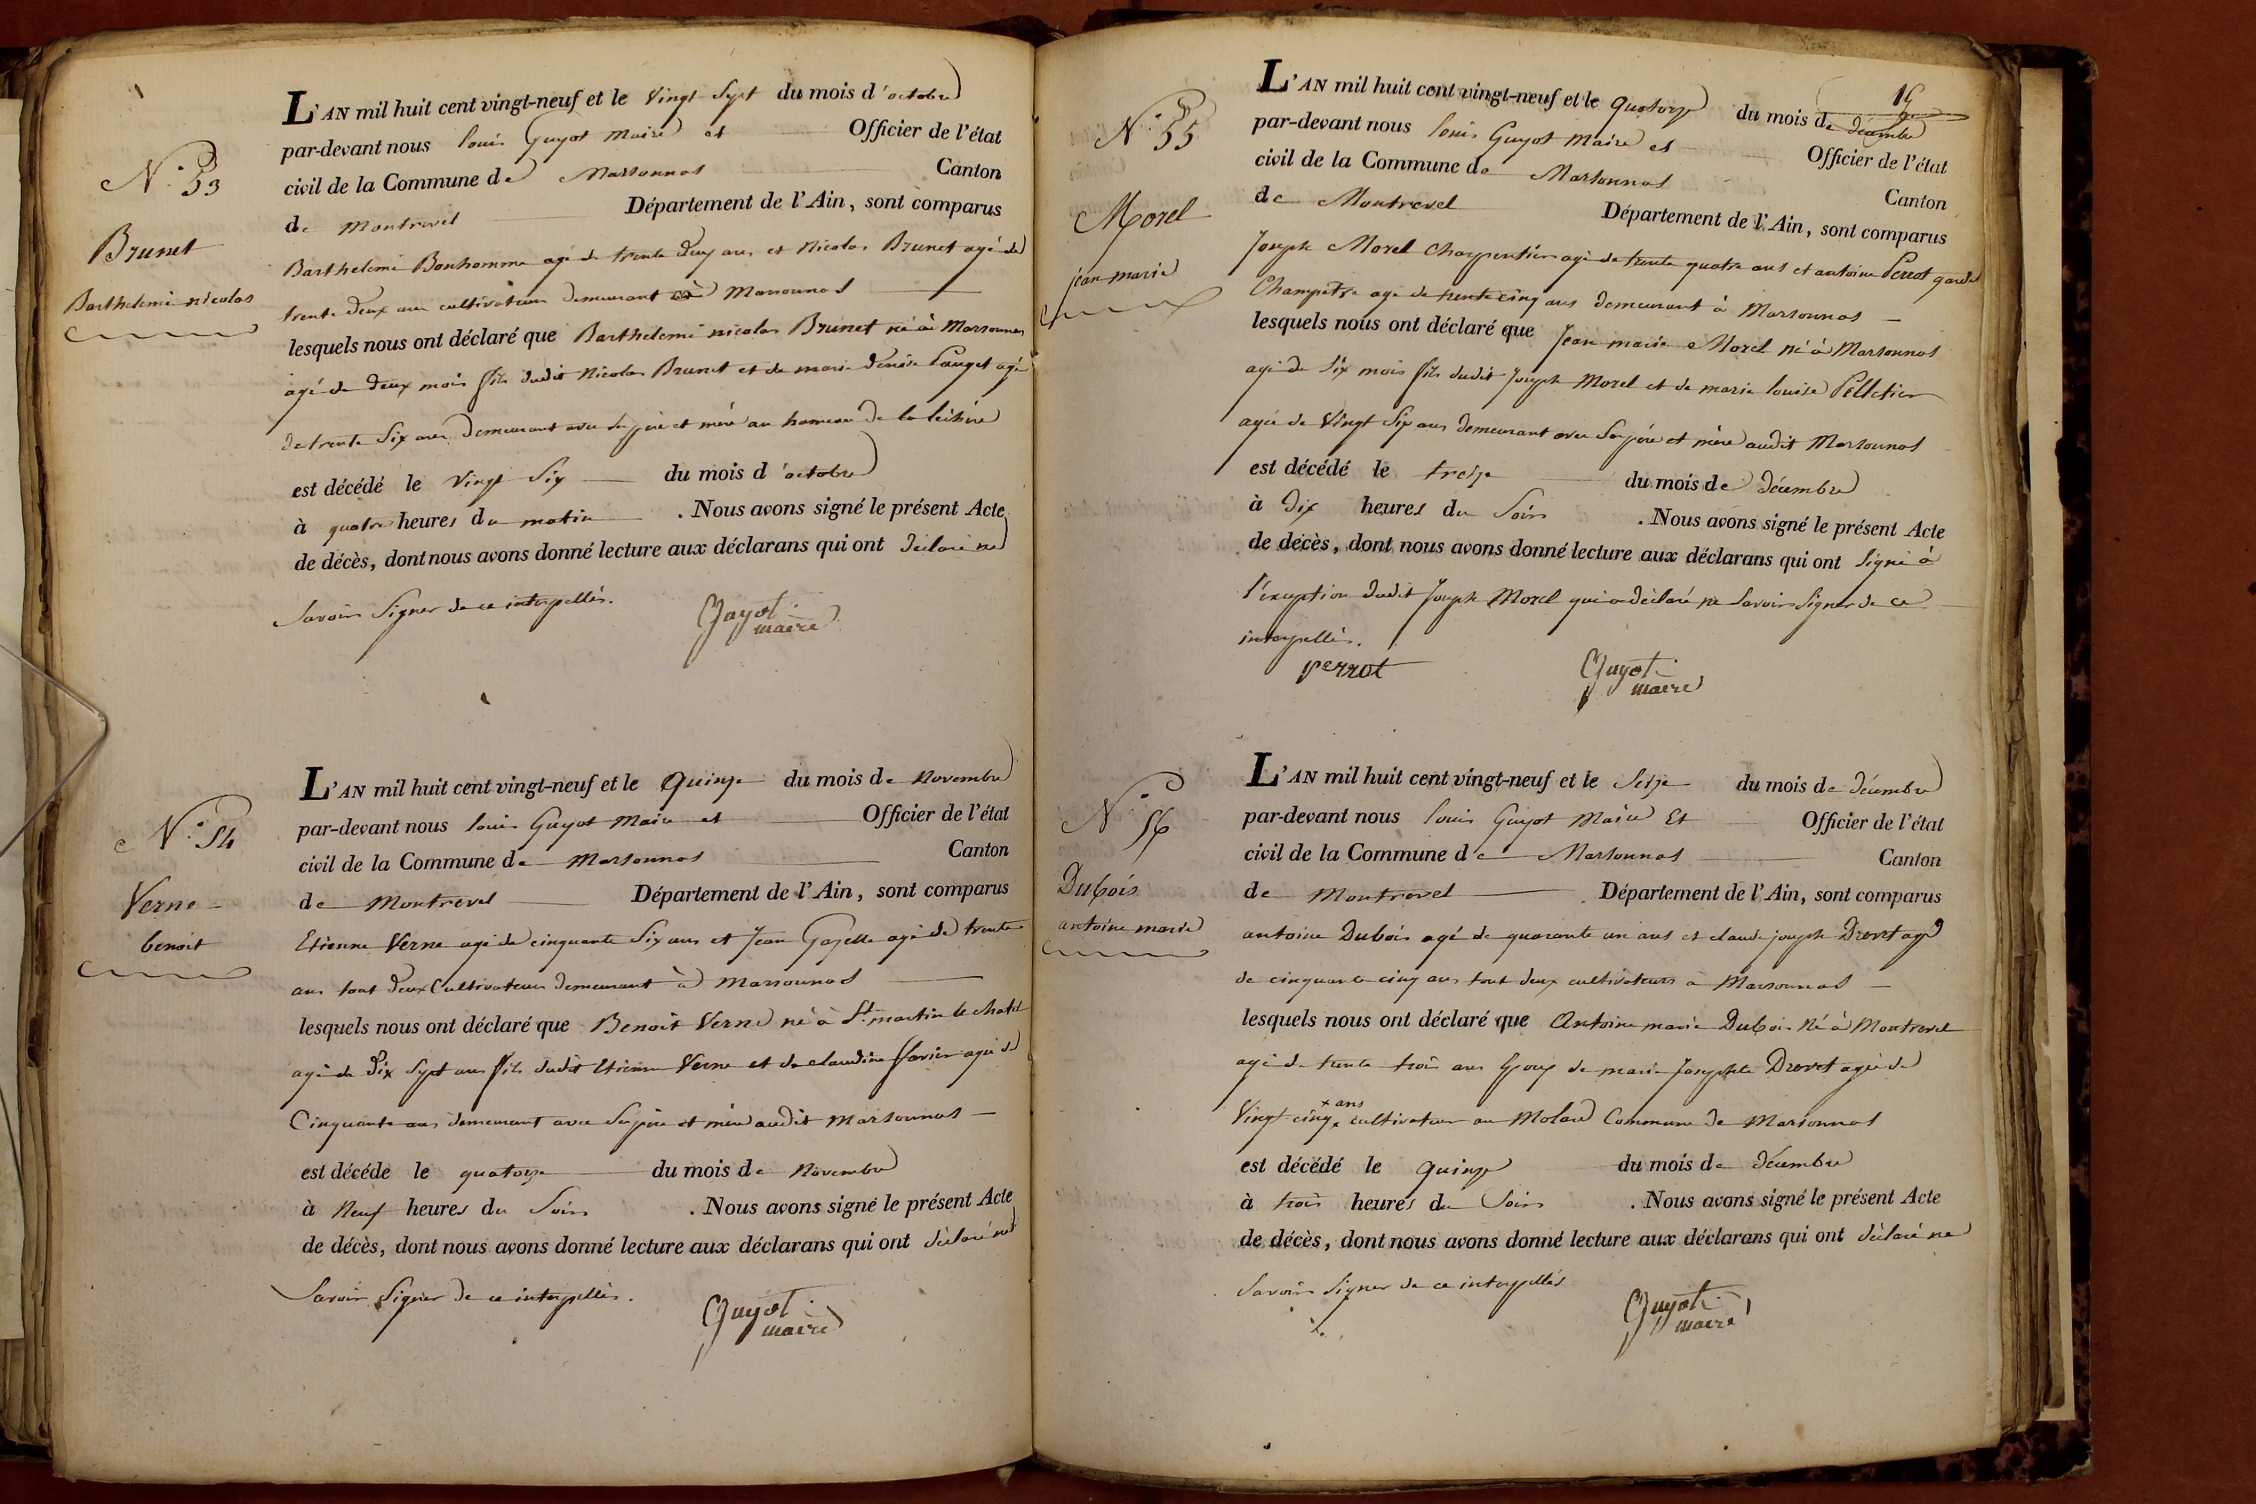 N.° 53
Brunet
Barthelemi nicolas
L'AN mil huit cent vingt-neuf et le vingt Sept du mois d'octobre
par-devant nous louis Guyot Maire et Officier de l'état
civil de la Commune de Marsonnas Canton
de Montrevel Département de l'Ain, sont comparus
Barthelemi Bonhomme agé de trente deux ans et Nicolas Brunet agé de
trente deux ans cultivateurs demeurant à Marsonnas
lesquels nous ont déclaré que Barthelemi nicolas Brunet né à Marsonnas
agé de deux mois fils dudit Nicolas Brunet et de marie denise Pauget agée
de trente Six ans demeurant avec Ses père et mère au hameau de la
est décédé le vingt Six du mois d'octobre
à quatre heures du matin . Nous avons signé le présent Acte
de décès, dont nous avons donné lecture aux déclarans qui ont déclaré ne
Savoir Signer de ce interpellés.
Guyot
maire
N.° 54
Verne
benoit
L'AN mil huit cent vingt-neuf et le quinze du mois de Novembre
par-devant nous louis Guyot Maire et Officier de l'état
civil de la Commune de Marsonnas Canton
de Montrevel Département de l'Ain, sont comparus
Etienne Verne agé de cinquante Six ans et Jean Gazelle agé de trente
ans tout deux Cultivateurs demeurant à Marsonnas
lesquels nous ont déclaré que Benoit Verne né à St. martin le chatel
agé de Dix Sept ans fils dudit Etienne Verne et de claudine favier agée de
Cinquante ans demeurant avec Ses père et mère audit Marsonnas
est décéde le quatorze du mois de Novembre
à Neuf heures du Soir . Nous avons signé le présent Acte
de décès, dont nous avons donné lecture aux déclarans qui ont déclaré ne
Savoir Signer de ce interpellés.
Guyot
maire
N.° 55
Morel
jean marie
L'AN mil huit cent vingt-neuf et le quatorze du mois de décembre
par-devant nous louis Guyot Maire et Officier de l'état
civil de la Commune de Marsonnas Canton
de Montrevel Département de l'Ain, sont comparus
Joseph Morel Charpentier agé de trente quatre ans et antoine Perrot garde
Champetre agé de trente cinq ans demeurant à Marsonnas
lesquels nous ont déclaré que Jean marie Morel né à Marsonnas
agé de Six mois fils dudit Joseph Morel et de marie louise Pelletier
agée de Vingt Six ans demeurant avec Ses père et mère audit Marsonnas
est décédé le treize du mois de décembre
à Dix heures du Soir . Nous avons signé le présent Acte
de décès, dont nous avons donné lecture aux déclarans qui ont Signé à
l'exception dudit Joseph Morel qui a déclaré ne Savoir Signer de ce
interpellés.
perrot
Guyot
maire
N.° 56
Dubois
antoine marie
L'AN mil huit cent vingt-neuf et le Seize du mois de décembre
par-devant nous louis Guyot Maire Et Officier de l'état
civil de la Commune de Marsonnas Canton
de Montrevel Département de l'Ain, sont comparus
antoine Dubois agé de quarante un ans et claude joseph Drevet agé
de cinquante cinq ans tout deux cultivateurs à Marsonnas
lesquels nous ont déclaré que Antoine marie Dubois Né à Montrevel
agé de trente trois ans Epoux de marie Josephte Drevet agée de
x ans
Vingt cinq x cultivateur au Molard Commune de Marsonnas
est décédé le quinze du mois de décembre
à trois heures du Soir . Nous avons signé le présent Acte
de décès, dont nous avons donné lecture aux déclarans qui ont déclaré ne
Savoir Signer de ce interpellés
Guyot
maire